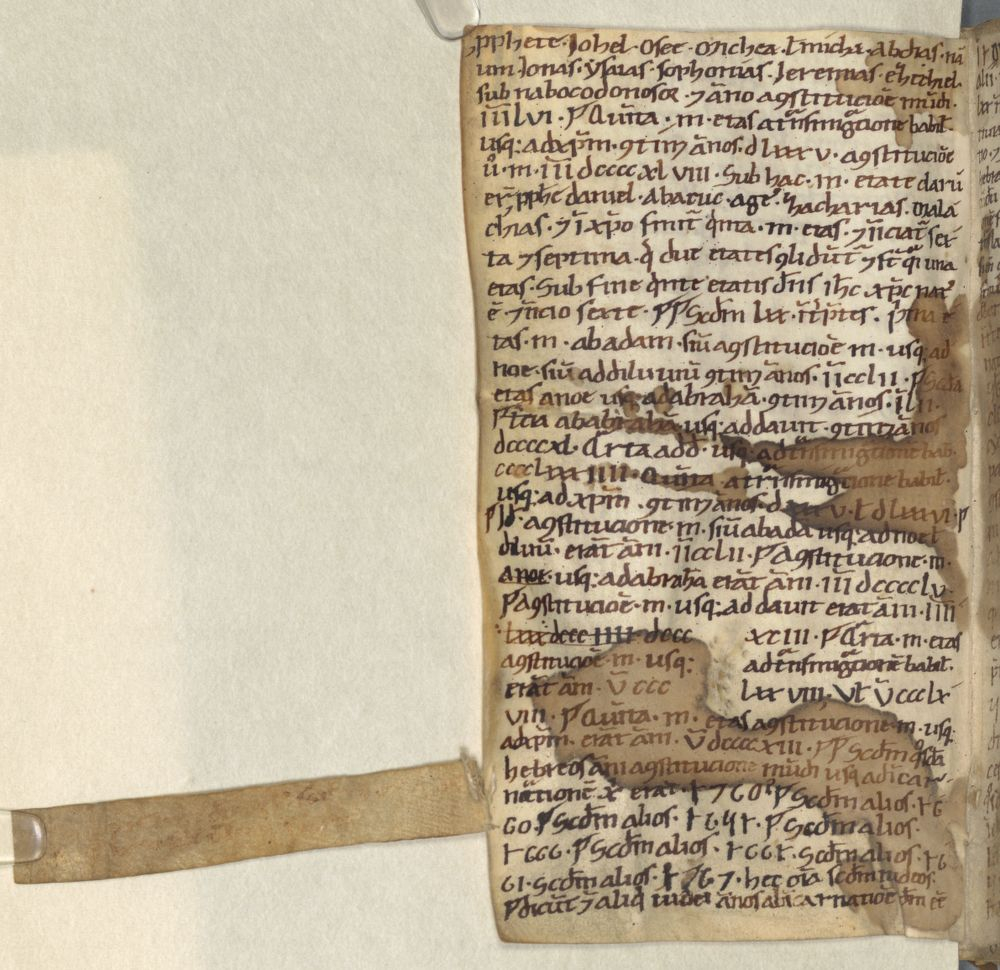 pphete · Johel · Osee · Michea · ł micha · Abdias · nā
um Jonas · ysaias · sophonias · Jeremias · ezichiel
sub nabocodonosor · ⁊ āno a ꝯstitucioē mūdi ·
īīī lvi · P Quinta · m · etas a trāsmigracione babil̄ ·
usq; ad xp̄m · ꝯtin&amp; ānos · d lxxx v · a ꝯstitucioē
ū · m · īīī dcccc xl viii · Sub hac · m · etate darū
er̄ pphē daniel · Abacuc · age᾿ · zacharias · mala
chias · ⁊ ī xp̄o finit q̄nta · m · etas · ⁊ īīciat᾿ sex
ta ⁊ septima · q̄ due etates
etas · Sub fine q̄nte etatis dn̄s ih̄c xp̄c nat᾿
ē · ⁊ īicio sexte · PP Scd̄m lxx · īt̄p̄tes · p̄ma e
tas · m · ab adam · siū a ꝯstitucioē m · usq; ad
noe · siū ad diluuiū ꝯtin&amp; ānos · īī cclii · P Scd̄a
etas a noe usq; ad abrahā · ꝯtin&amp; ānos ·
P t̄cia ab abrahā usq; ad dauit · ꝯtin&amp; ānos
dcccc xl · Qrta a dd̄ · usq; ad trāsmigracione bab ·
cccc lxxx iiii · Quinta a trāsmigracione babil̄ ·
usq; ad xp̄m · ꝯtin&amp; ānos · d xxx v · ł d lxxx vi · P
Id̄ · a ꝯstitucione · m · siū ab ada usq; ad noe ł
diluuiū · erāt ām · īī cclii · P A ꝯstitucione · m ·
a noe · usq; ad abrahā erāt ām · īīī dcccc lv ·
P a ꝯstitucioē · m · usq; ad dauit erāt ām · īīīī
lxxx dccc iiii · dccc xciii · P Qrta · m · etas
a ꝯstitucioē · m · usq; ad trāsmigracionē babil̄ ·
erāt ām · v̄ ccc lxx viii · Vł v̄ ccc lx
viii · P Quinta · m · etas a ꝯstitucione · m · usq;
ad xp̄m · erāt ām · v̄ dcccc xiii · PP Scd̄m q᾿sdā
hebreos āni a ꝯstitucione mūdi usq; ad icar
natione x̄ erāt · 1760 · P Scd̄m alios · 16
60 · P Scd̄m alios · P Scd̄m alios ·
1666 · P Scd̄m alios · 1661 · Scd̄m alios · 16
61 · Scd̄m alios · 1767 · hec oīa scd̄m iudeos ·
P dicūt ⁊ aliq̄ iudei ānos ab icarnatioē dn̄i